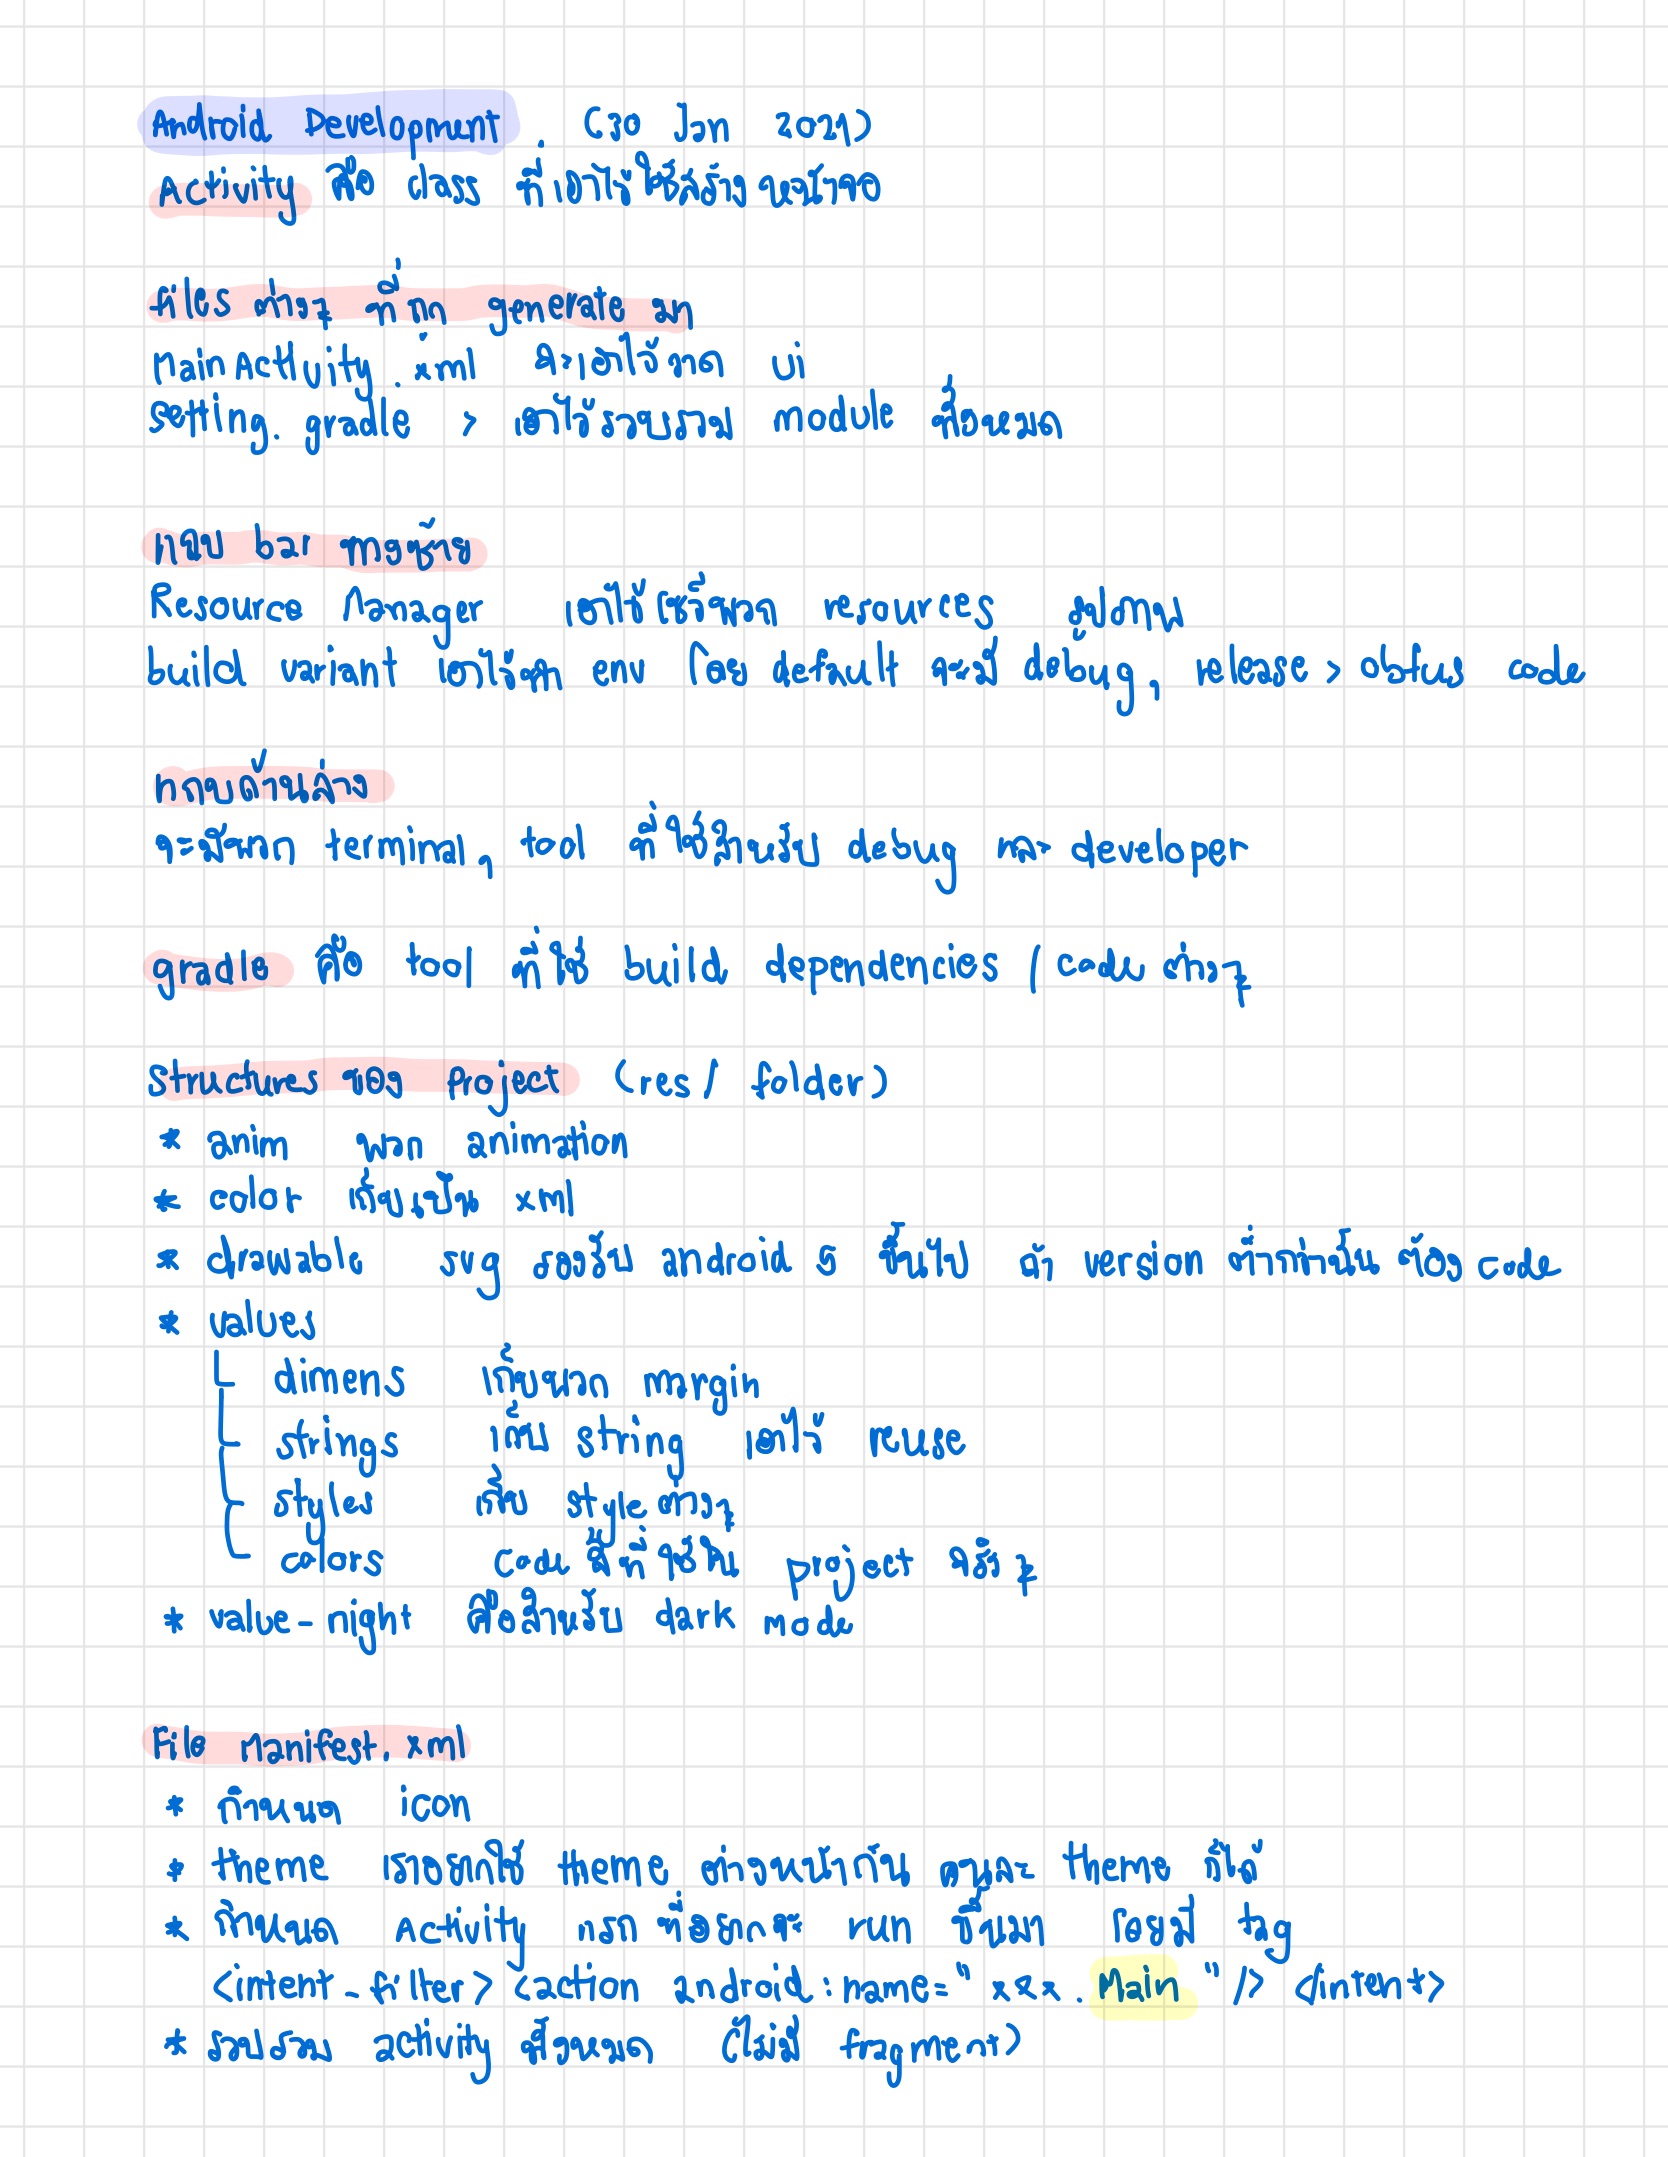 Android Development. (30 Jan 2021)
Activity คือ class ที่เอาไว้ใช้สร้างหน้าจอ
files ต่างๆ ที่ถูก generate มา
MainActivity.xml จะเอาไว้วาด ui
setting.gradle > เอาไว้รวบรวม module ทั้งหมด
แถบ bar ทางซ้าย
Resource Manager เอาไว้โชว์พวก resources รูปภาพ
build variant เอาไว้ทำ env โดย default จะมี debug, release > obfus code
แถบด้านล่าง
จะมีพวก terminal, tool ที่ใช้สำหรับ debug และ developer
gradle คือ tool ที่ใช้ build dependencies / code ต่างๆ
Structures ของ Project (res/ folder)
* anim พวก animation
* color เก็บเป็น xml
* drawable svg รองรับ android 5 ขึ้นไป ถ้า version ต่ำกว่านั้น ต้อง code
* values
dimens เก็บพวก margin
strings เก็บ string เอาไว้ reuse
styles เก็บ style ต่างๆ
colors code สีที่ใช้ใน project จริงๆ
* value-night คือสำหรับ dark mode
File Manifest.xml
* กำหนด icon
* theme เราอยากใช้ theme ต่างหน้ากัน คนละ theme ก็ได้
* กำหนด Activity แรก ที่อยากจะ run ขึ้นมา โดยมี tag
<intent-filter> <action android:name="xxx.Main"/> </intent>
* รวบรวม activity ทั้งหมด (ไม่มี fragment)